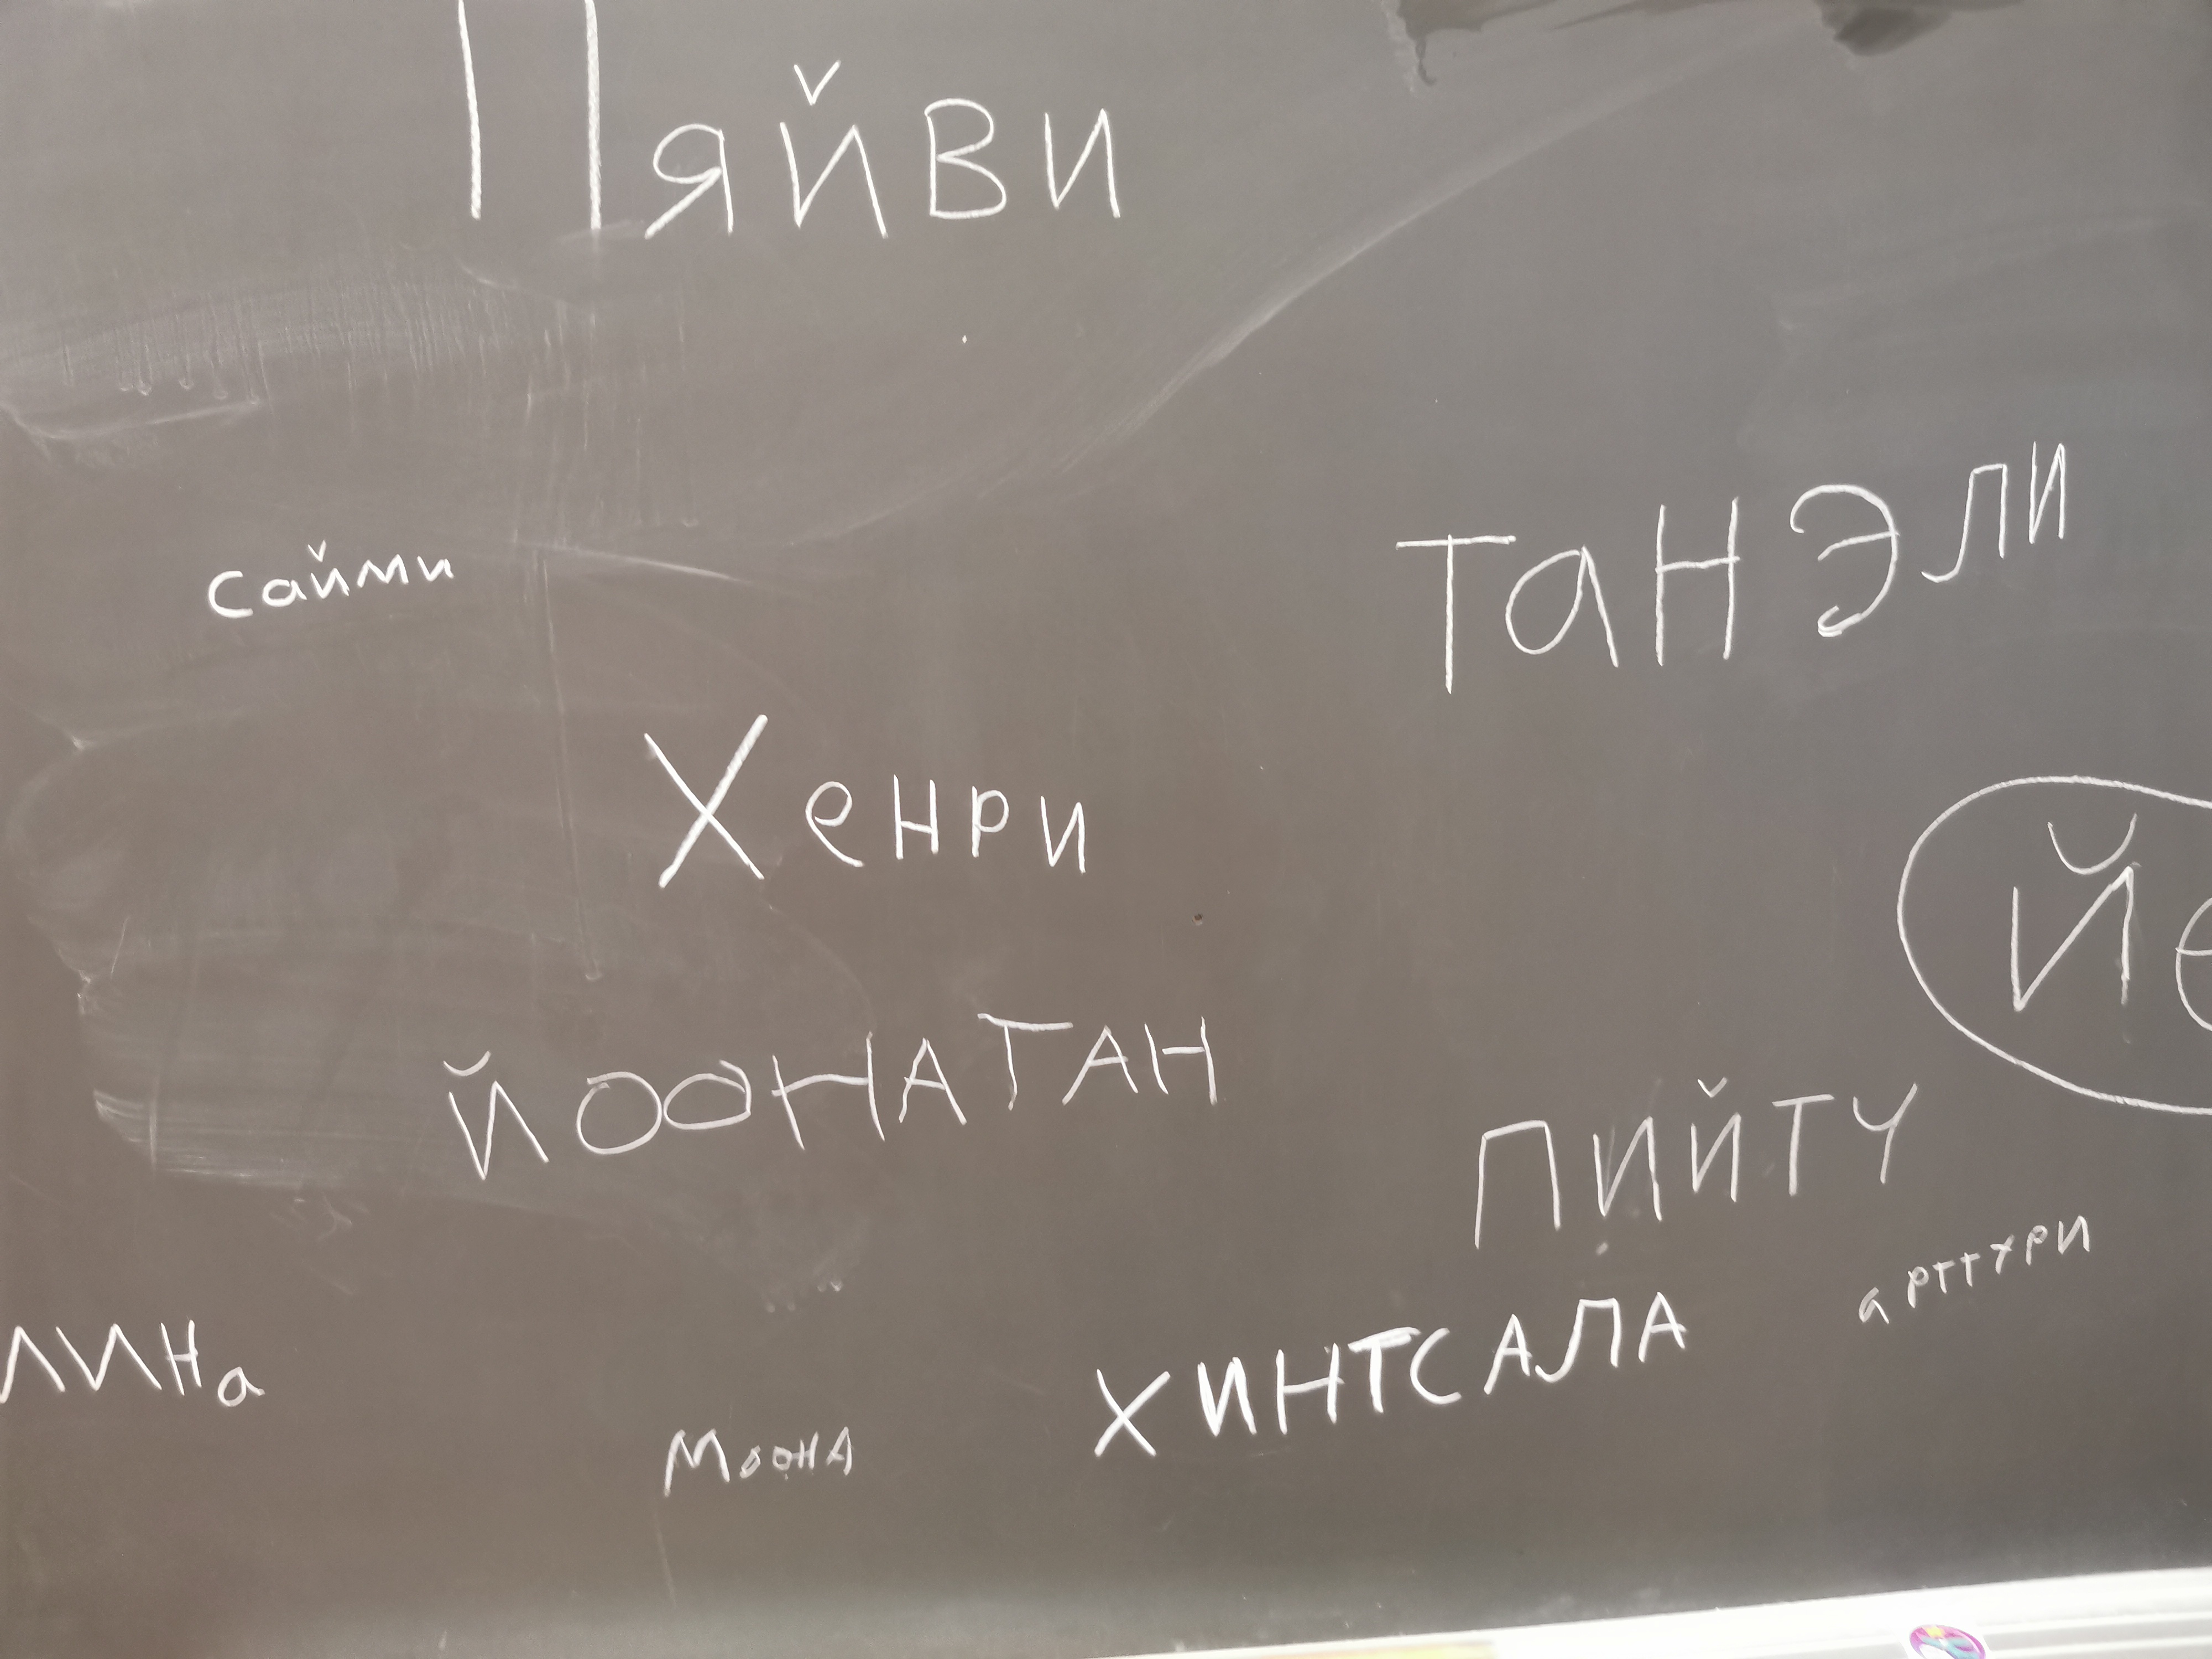 Пяйви
сайми
танэли
Хенри
йе
йоонатан
пийту
арттури
лина
хинтсала
Моона